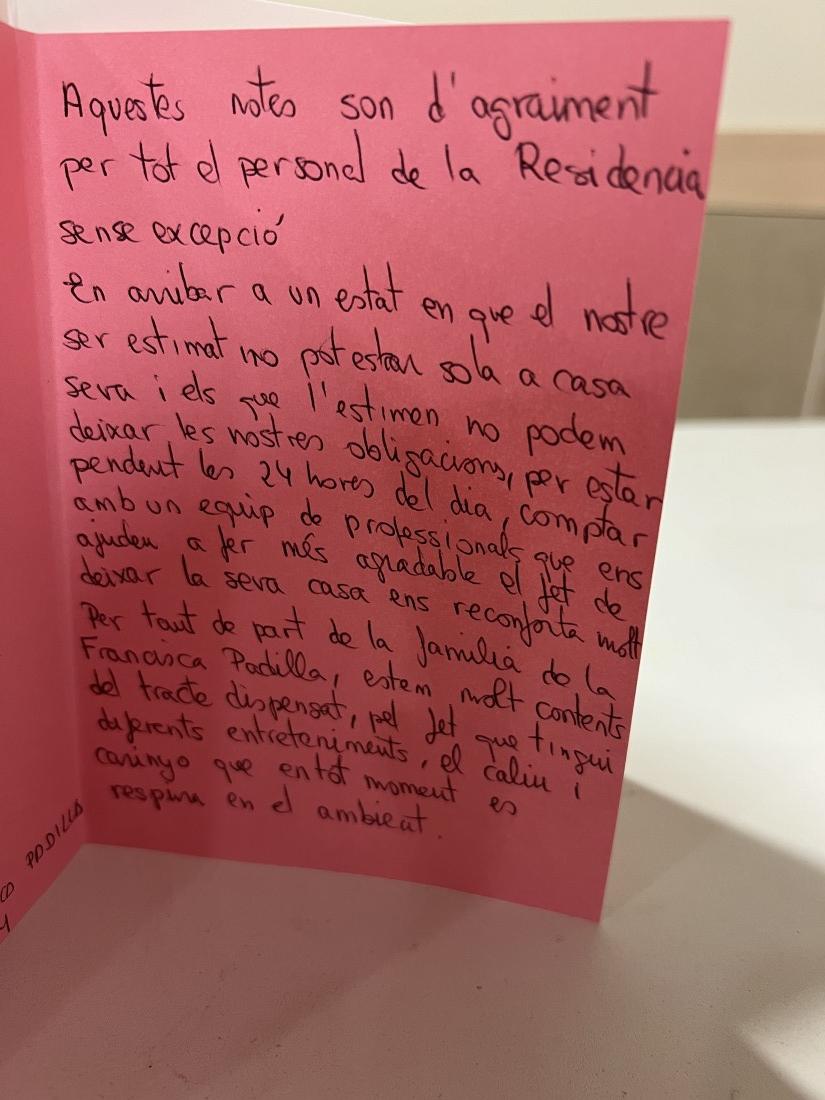 Aquestes notes son d'agraiment
per tot el personal de la Residencia
sense excepció
En arribar a un estat en que el nostre
ser estimat no pot estar sola a casa
seva i els que l'estimen no podem
deixar les nostres obligacions, per estar
pendent les 24 hores del dia, comptar
amb un equip de professionals que ens
ajuden a fer més agradable el fet de
deixar la seva casa ens reconforta molt
Per tant de part de la familia de la
Francisca Padilla, estem molt contents
del tracte dispensat, pel fet que tingui
diferents entreteniments, el caliu i
carinyo que en tot moment es
respira en el ambient.
PADILLA